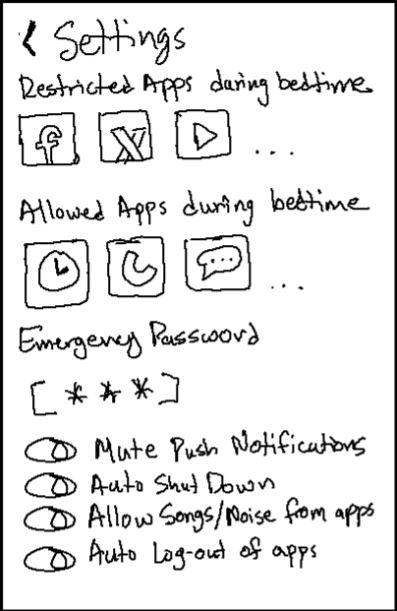 < Settings
Restricted Apps during bedtime
f X ...
Allowed Apps during bedtime
...
Emergency Password
[ * * * ]
Mute Push Notifications
Auto Shut Down
Allow Songs/Noise from apps
Auto Log-out of apps